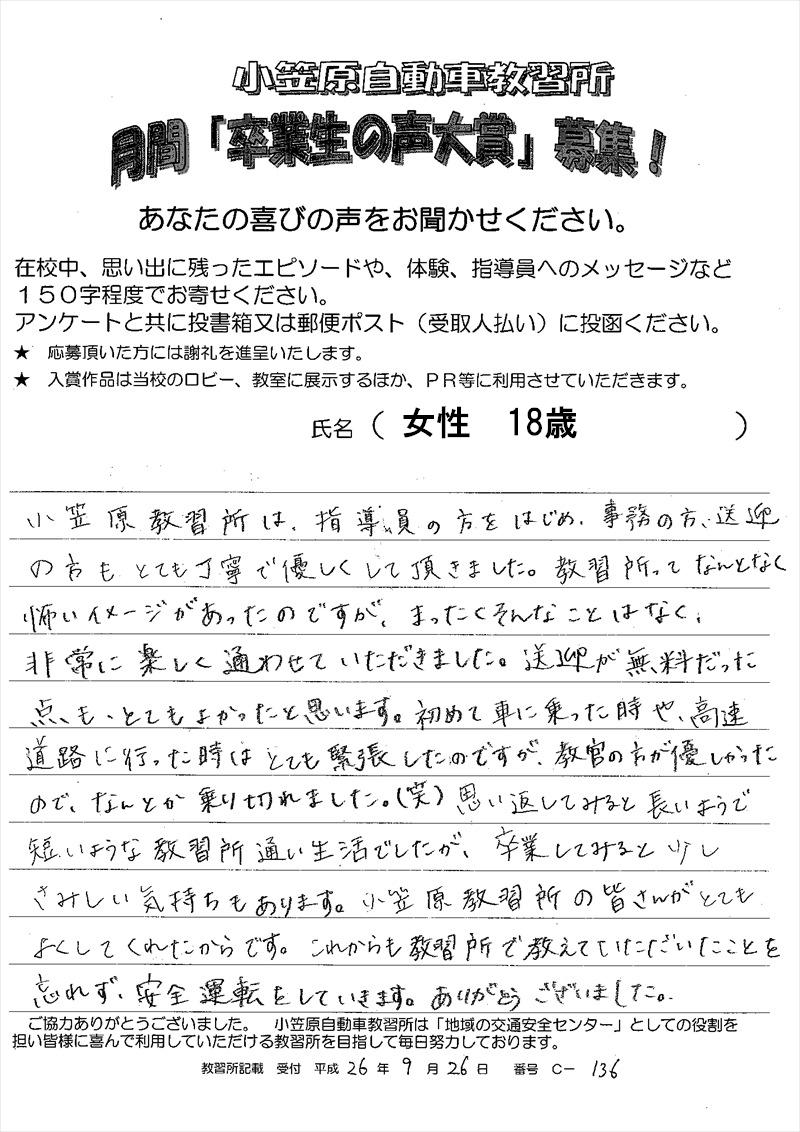 小笠原自動車教習所
月間「卒業生の声大賞」募集!
あなたの喜びの声をお聞かせください。
在校中、思い出に残ったエピソードや、体験、指導員へのメッセージなど
150字程度でお寄せください。
アンケートと共に投書箱又は郵便ポスト(受取人払い)に投函ください。
★ 応募頂いた方には謝礼を進呈いたします。
★ 入賞作品は当校のロビー、教室に展示するほか、PR等に利用させていただきます。
氏名( 女性 18歳 )
小笠原教習所は、指導員の方をはじめ、事務の方、送迎
の方もとても丁寧で優しくして頂きました。教習所ってなんとなく
怖いイメージがあったのですが、まったくそんなことはなく、
非常に楽しく通わせていただきました。送迎が無料だった
点も、とてもよかったと思います。初めて車に乗った時や、高速
道路に行った時はとても緊張したのですが、教官の方が優しかった
ので、なんとか乗り切れました。(笑)思い返してみると長いようで
短いような教習所通い生活でしたが、卒業してみると少し
さみしい気持ちもあります。小笠原教習所の皆さんがとても
よくしてくれたからです。これからも教習所で教えていただいたことを
忘れず、安全運転をしていきます。ありがとうございました。
ご協力ありがとうございました。 小笠原自動車教習所は「地域の交通安全センター」としての役割を
担い皆様に喜んで利用していただける教習所を目指して毎日努力しております。
教習所記載 受付 平成 26 年 9 月 26 日 番号 C- 136